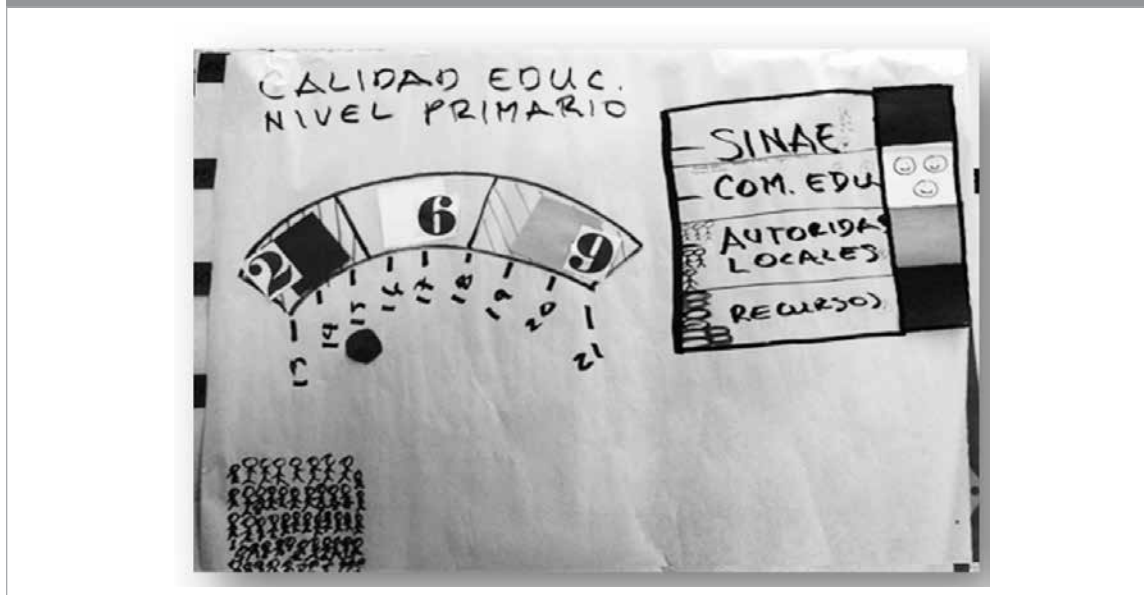 CALIDAD EDUC.
NIVEL PRIMARIO
2
6
9
13
14
15
16
17
18
19
20
21
SINAE.
COM. EDU
AUTORIDAS
LOCALES
RECURSOS